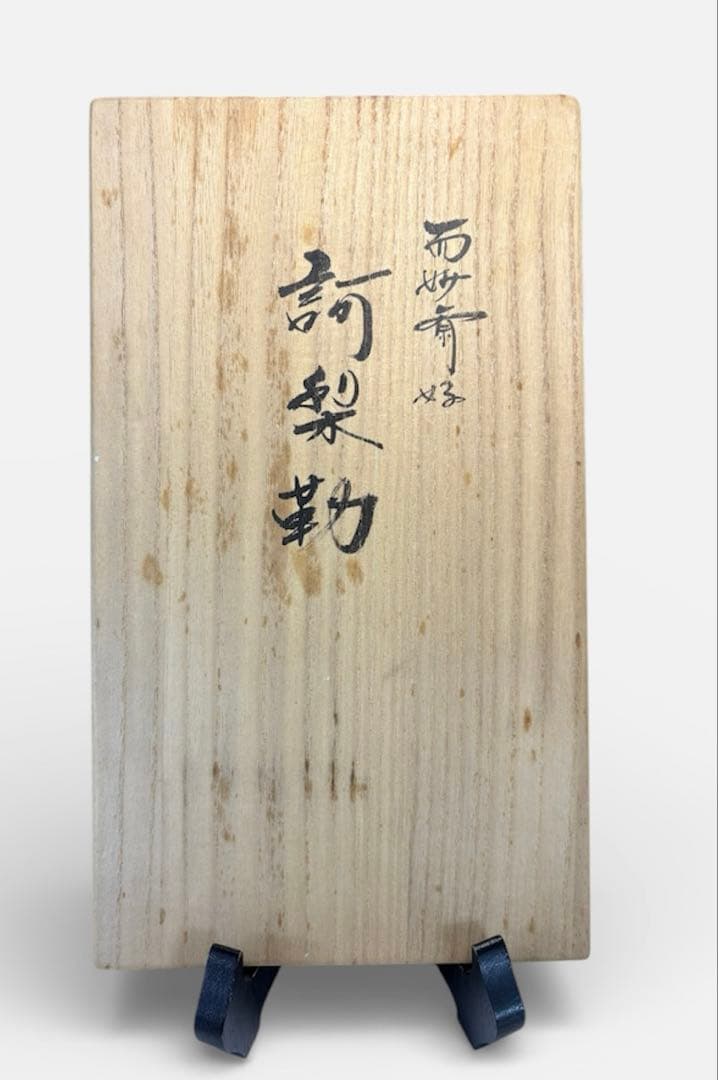 而妙斎好
訶梨勒